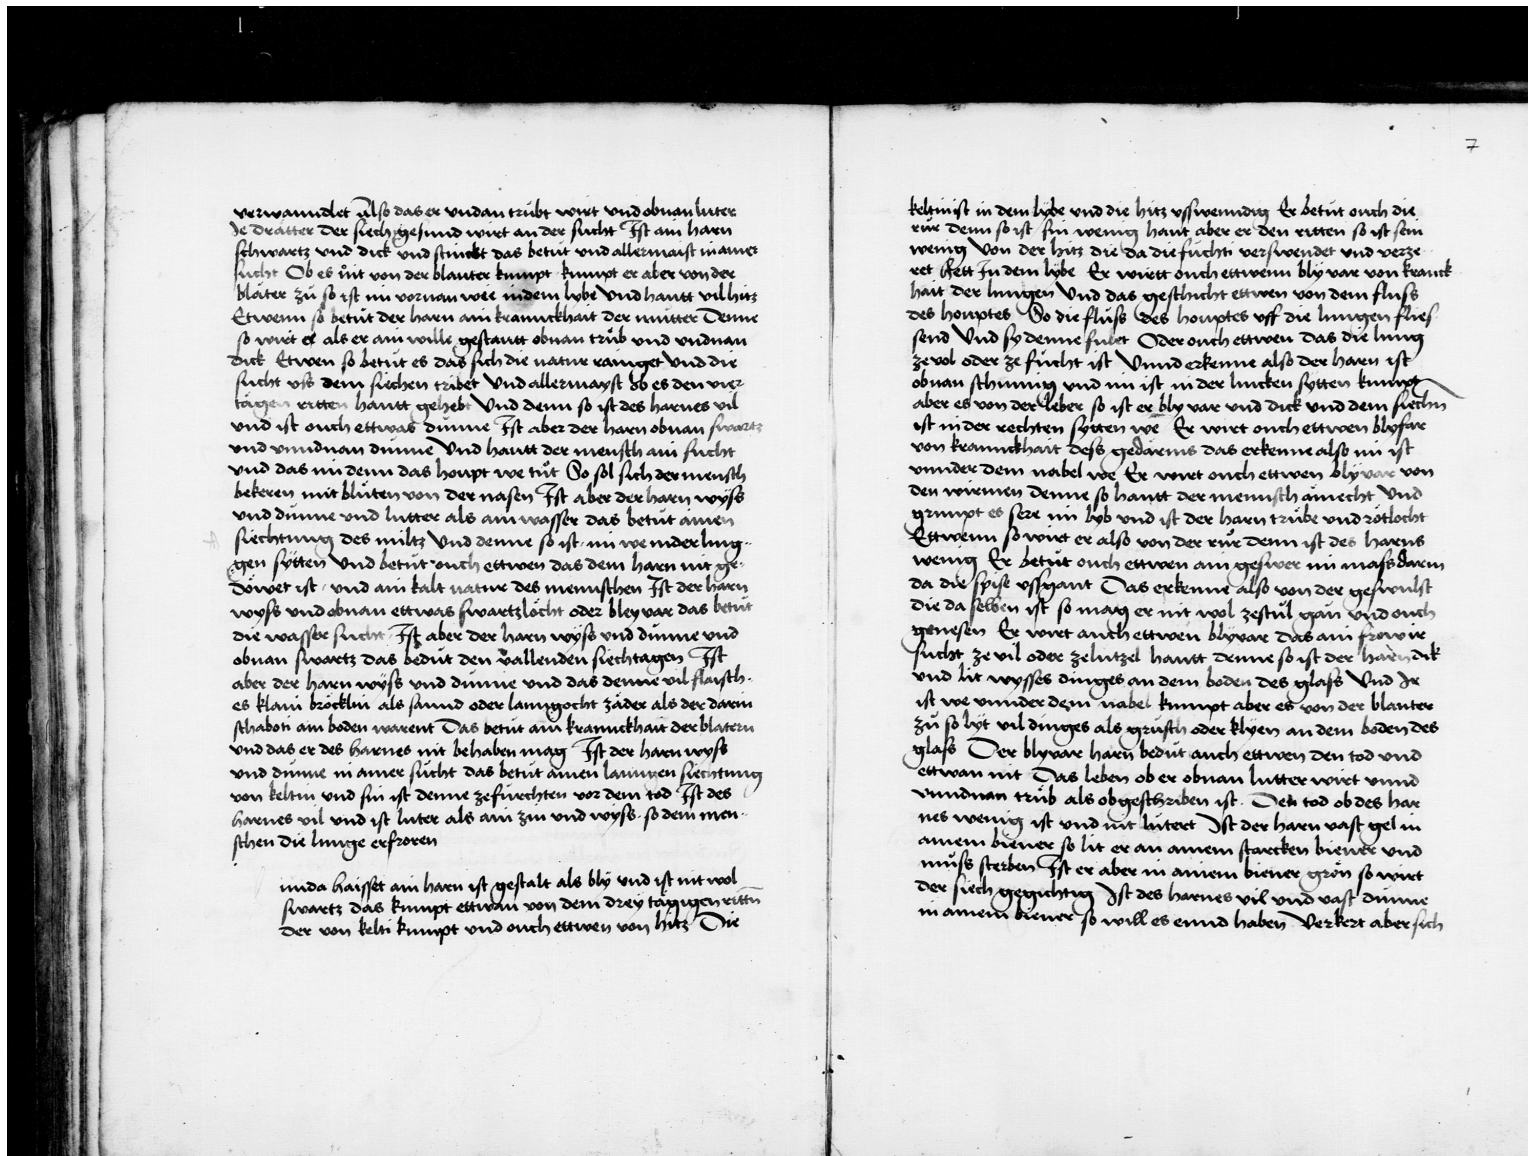 verwanndlet Also das er undan trübt wirt und obnan luter
Je dratter der siech gesund wirt an der sucht Ist am harn
schwartz und dick und stinckt das betüt und allermaist in ainer
sucht Ob es nit von der blauter kumpt kumpt er aber von der
blater zu so ist im vornan wee in dem lybe Und hautt vil hitz
Etwenn so betüt der harn ain krannckhait der mutter Denne
so wirt er als er ain wille gestautt obnan trüb und undnan
dick Etwen so betüt es das sich die natur rainget Und die
sucht uss dem siechen tribet Und allermayst ob es den vier
tägen ritten hautt gehebt Und denn so ist des harnes vil
und ist ouch ettwas dünne Ist aber der harn obnan swartz
und unndnan dünne Und hautt der mensch ain sucht
und das im denn das houpt we tüt So sol sich der mensch
bekeren mit blüten von der nasen Ist aber der harn wyss
und dünne und lutter als ain wasser das betüt ainen
siechtung des miltz Und denne so ist im we in der ling-
gen sytten Und betüt ouch ettwen das dem harn nit ge-
döwet ist und ain kalt natur des mennschen Ist der harn
wyss und obnan ettwas swartzlöcht oder bley var das betüt
die wasser sucht Ist aber der harn wyss und dünne und
obnan swartz das bedüt den vallenden siechtagen Ist
aber der harn wyss und dünne und das denne vil flaisch-
es klain bröcklin als sannd oder lanngocht zäder als der darin
schaboti am boden warent Das betüt ain kranckhait der blatern
und das er des harnes nit behaben mag Ist der harn wyss
und dünne in ainer sucht das betüt ainen lanngen siechtung
von keltin und sin ist denne zefürchten vor dem tod Ist des
harnes vil und ist luter als ain zin und wyss so dem men-
schen die lunge erfroren
inda haisset ain harn ist gestalt als bly und ist nit wol
swartz das kumpt ettwan von dem drey tägigen rittn
der von kelti kumpt und ouch ettwen von hitz Die
7
keltin ist in dem lybe und die hitz usswenndig Er betüt ouch die
rür denn so ist sin wenig haut aber er den ritten so ist sein
wenig Von der hitz die da die füchti verswendet und verze
ret hett In dem lybe Er wirtt ouch ettwenn bly var von kranck
hait der lungen Und das geschicht ettwen von dem fluss
des houptes So die flüss des houptes uff die lungen flies
send Und sy denne fület Oder ouch ettwen das die lung
ze vol oder ze fücht ist Unnd erkenne also der harn ist
obnan schumig und im ist in der lincken sytten kumpt
aber es von der leber so ist er bly var und dick und dem siechn
ist in der rechten sytten we Er wirt ouch ettwen blyfar
von kranckhait dess gedärms das erkenne also im ist
unnder dem nabel we Er wirt ouch ettwen bly var von
den wirmen denne so hautt der mennsch amecht Und
grimpt es sere im lyb und ist der harn trübe und rötlocht
Ettwenn so wirt er also von der rür denn ist des harns
wenig Er betüt ouch ettwen ain geswer im massdarm
da die spise ussgant Das erkenne also von der geswulst
die da selben ist so mag er nit wol ze stül gan und ouch
genesen Er wirt auch ettwen blyvar das ain frow ir
sucht ze vil oder ze lützel hautt denne so ist der harn dik
und lit wysses dinges an dem boden des glass Und Ir
ist we unnder dem nabel kumpt aber es von der blauter
zu so lyt vil dinges als grüsch oder klyen an dem boden des
glass Der blyvar harn bedüt auch ettwen den tod und
ettwan nit Das leben ob er obnan lutter wirt unnd
unndnan trüb als obgeschriben ist Den tod ob des har
nes wenig ist und nit lütert Ist der harn vast gel in
ainem biener so lit er an ainem starcken biener und
müss sterben Ist er aber in ainem biener grön so wirt
der siech gegichtig Ist des harnes vil und vast dünne
in ainem biener so will es ennd haben Verkert aber sich